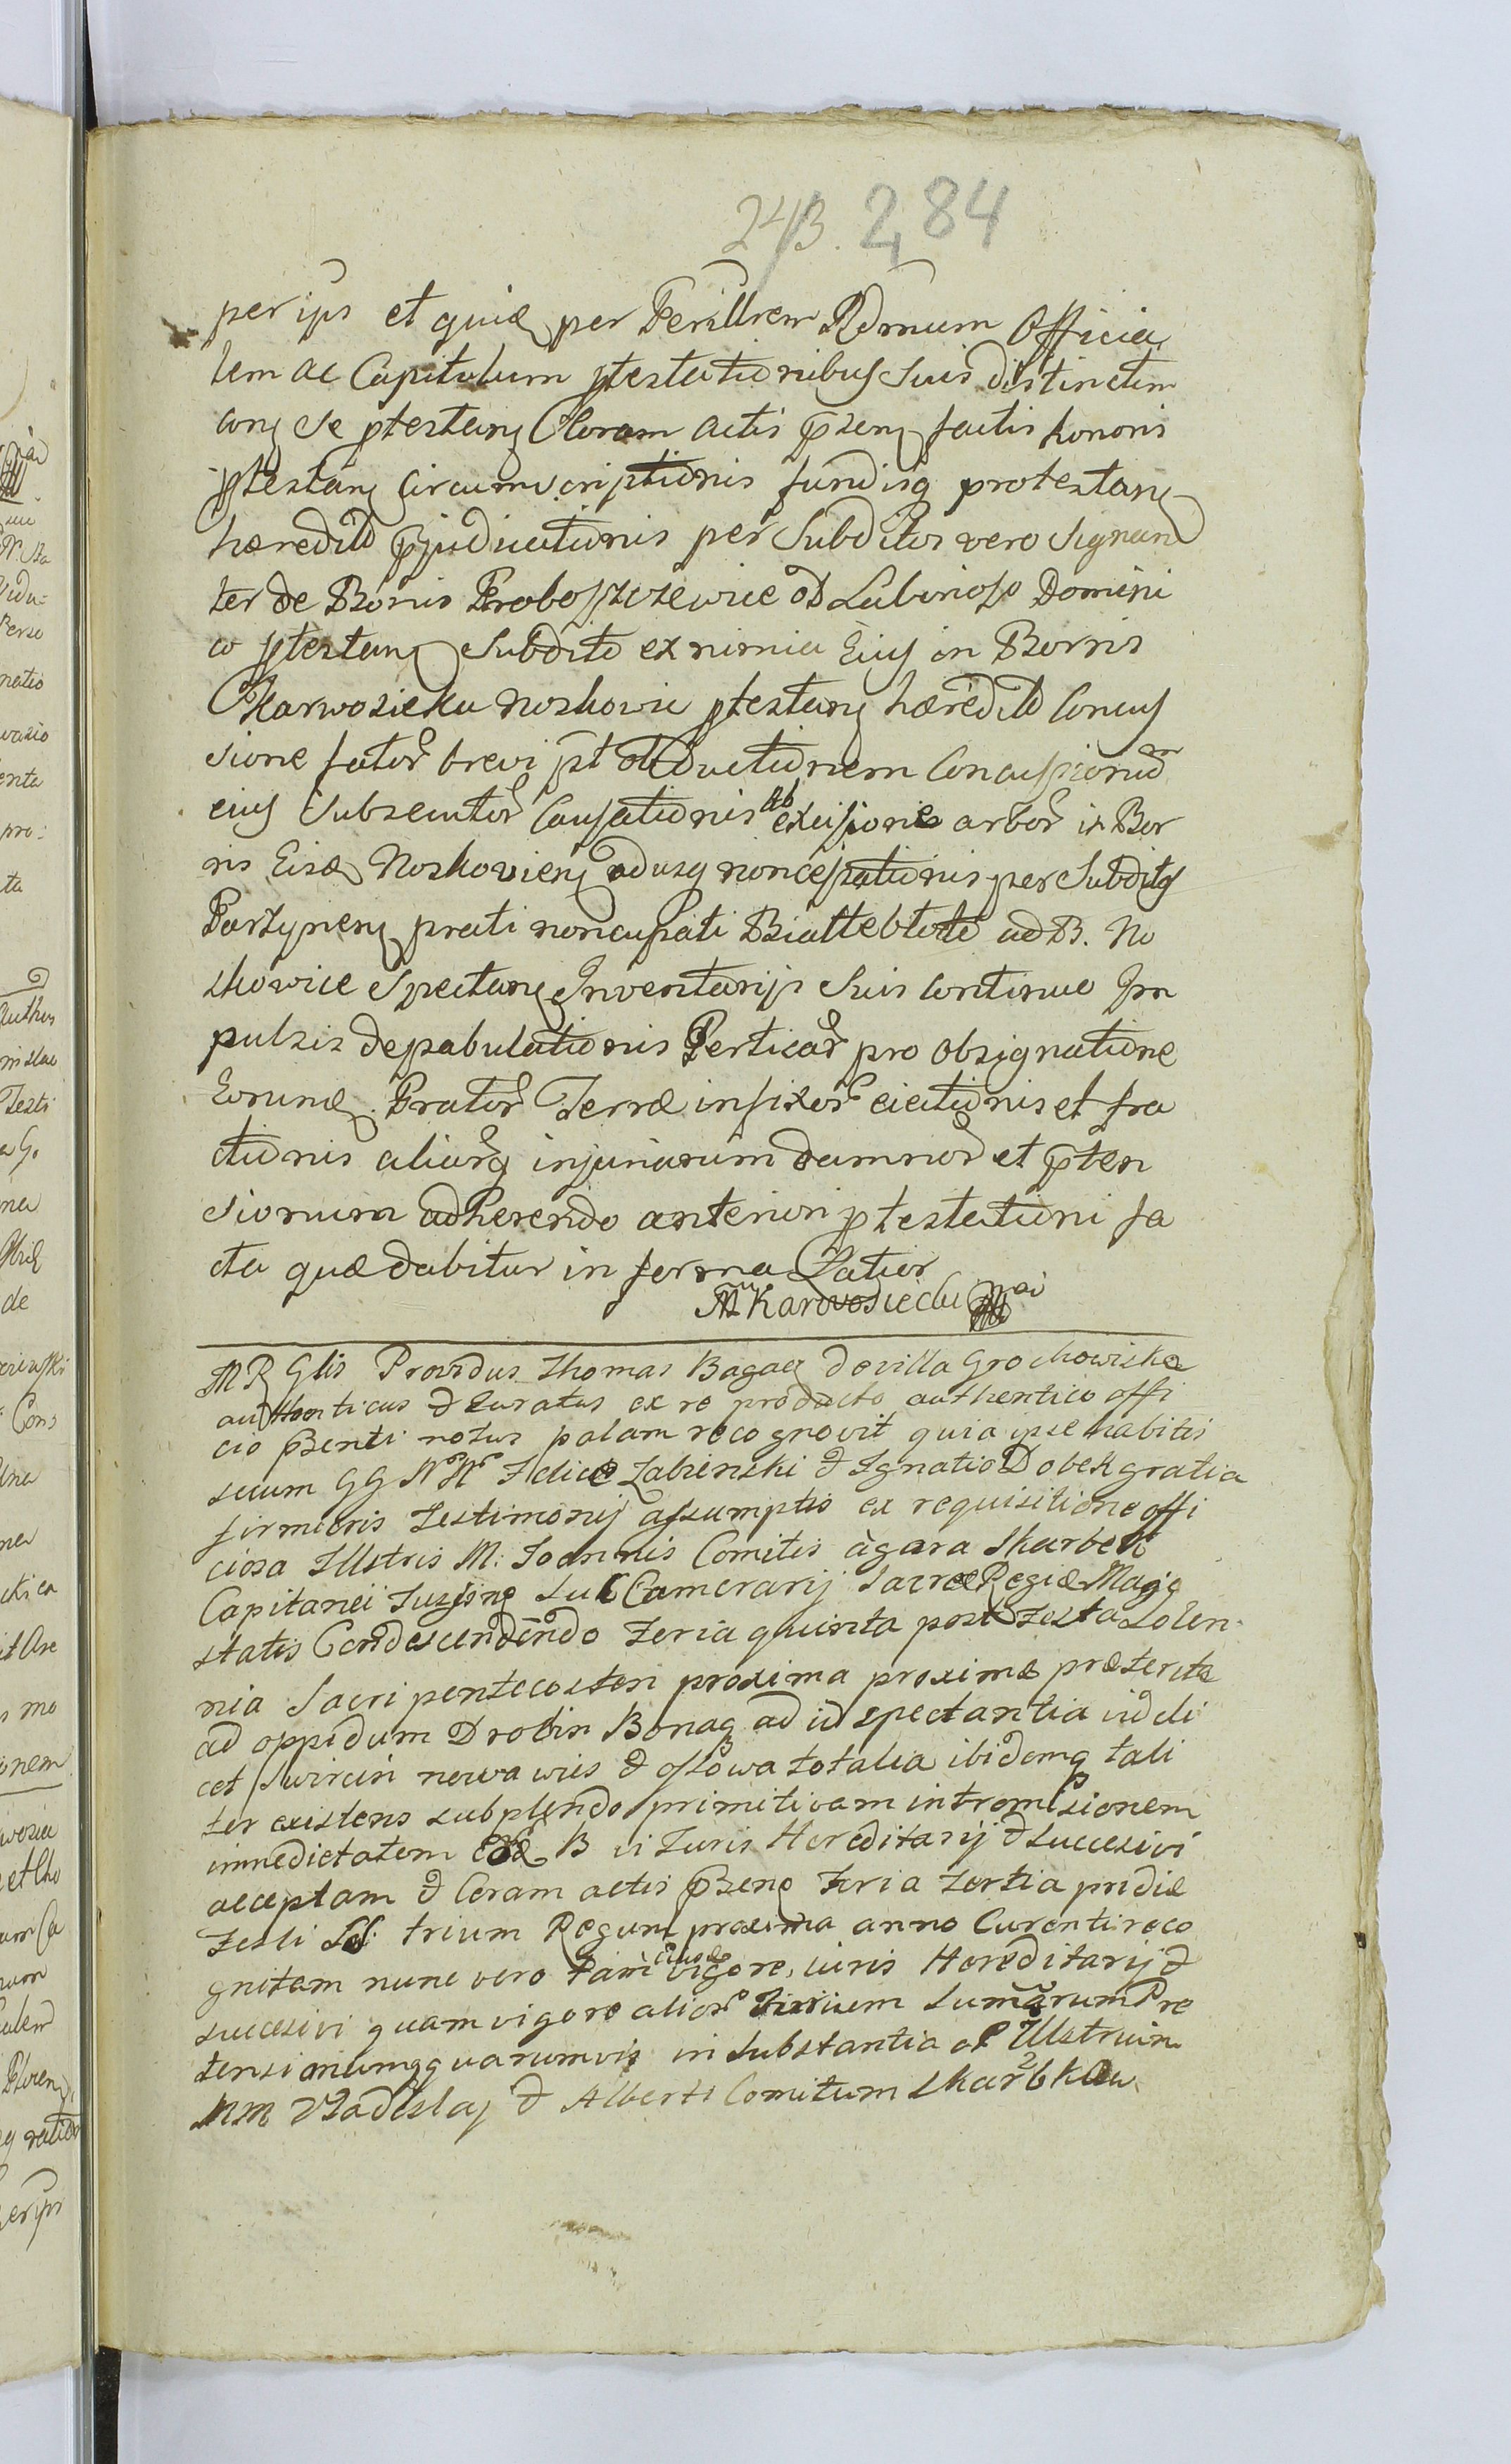 243. 284
per ips et guiæ per Perillrem Rdmum Officia
lem ac Capitulum ptestationibus suis distinctim
conq se ptestanq Coram actis pñtenq factis honoris
ptestanq Circumscriptionis fundisq protestanq
hæredild pjudicationis per Subditos vero signan
ter de Bonis Proboszczewice od Laborioso Domini
co ptestanq Subdito ex nimia Eius in Bonis
Karwosieku Noskovie ptestanq hæredild Concus
sione fator brevi pt obductionem Concussionum
eius subsecutor Causationis Ab excisione arbor in Bo
nis Eisd Noskovienq adusq noncessationis per Subditos
Partynenq prati noncupati Białłebłoto ad B. No
skowice Spectanq Inventarijs suis Continuo Im
pulsis depabulationis Perticar pro obsignatione
Eorund Prator Terræ infixor eiectionis et fra
ctionis aliarq injuriarum damnor et pten
sionum adherendo anteriori ptestationi fa
cta quæ dabitur in forma Latior
Karwosiecki
MR Glis Providus Thomas Bagaq de villa Grochowiska
authenticus & Iuratus ex re producto authentico offi
cio psenti notus palam recognovit quia ipse habitis
secum GG NN Felice Zabienski & Ignatio Dobek gratia
firmioris Testimonij assumptis ex requisitione offi
ciosa Illstris M. Joannis Comitis à gara Skarbek
Capitanei Suc Camerarij Sacræ Regiæ Maje
statis Condescendendo feria quinta post Festa Solen
nia Sacri pentecosten proxima proxime præterita
ad oppidum Drobin Bonaq ad id spectantia videli
cet Swircin nowa wies & ostowa totalia ibidemq tali
ter existens subplendo primitivam intromisionem
immediatatem B vi Iuris Hereditarij & succesivi
acceptam & Coram actis psenq feria tertia pridie
Festi SS trium Regum proxima anno Curenti reco
gnitam nunc vero tam vigore iuris Hereditarij &
succesivi quam vigore alior Iurium sumarum Pre
tensionumqquarumvis in substantia ol Illstrium
MM Vladislaj & Alberti Comitum Skarbkow